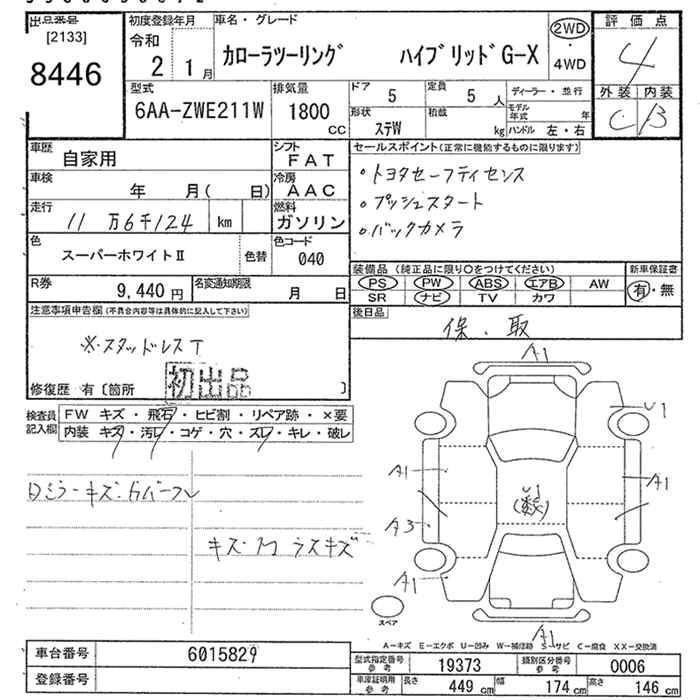 出品番号 初度登録年月 車名・グレード 評価点
[2133] 令和 カローラツーリング ハイブリッドG-X 2WD ・ 4WD 4
8446 2 1月
外装 内装
C B
型式 排気量 ドア 定員 ディーラー・並行
6AA-ZWE211W 1800 CC 5 5人 モデル年式 年
形状 ステW 積載 kg ハンドル 左・右
車歴 自家用 シフト FAT セールスポイント(正常に機能するものに限ります)
車検 年 月( 日) 冷房 AAC ・トヨタセーフティセンス
走行 11万6千124 km 燃料 ガソリン ・プッシュスタート
・バックカメラ
色 スーパーホワイトⅡ 色替 色コード 040
装備品(純正品に限り○をつけてください) 新車保証書
PS PW ABS エアB AW 有・無
SR ナビ TV カワ
R券 9,440円 名変通知期限 月 日
後日品 保、取
注意事項申告欄(不具合内容等は具体的に記入して下さい)
※スタッドレスT
初出品
修復歴 有〔箇所 〕
検査員記入欄 FW キズ・飛石・ヒビ割・リペア跡・×要
内装 キズ・汚レ・コゲ・穴・スレ・キレ・破レ
Dミラーキズ
キズ
ラスキズ
A1
U1
A1
A1
U1
(数)
A3
A1
A1
スペア
A-キズ E-エクボ U-凹み W-補修跡 S-サビ C-腐食 XX-交換済
車台番号 6015829
登録番号
型式指定番号 参考 19373 類別区分番号 参考 0006
車庫証明用 参考 長さ 449cm 幅 174cm 高さ 146cm